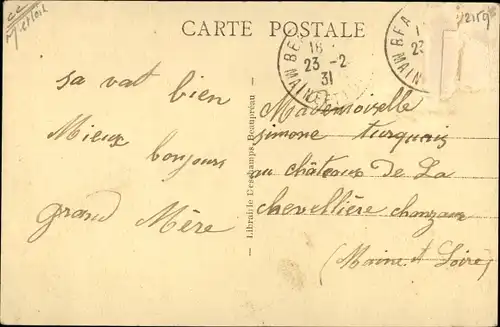 CARTE POSTALE
16
23-2
31
sa vat bien
Mieux bonjours
grand Mère
Librairie Deschamps, Beaupréau
Mademoiselle
simone turquais
au châteaux De La
chevellière chanzeaux
(Maine et Loire)